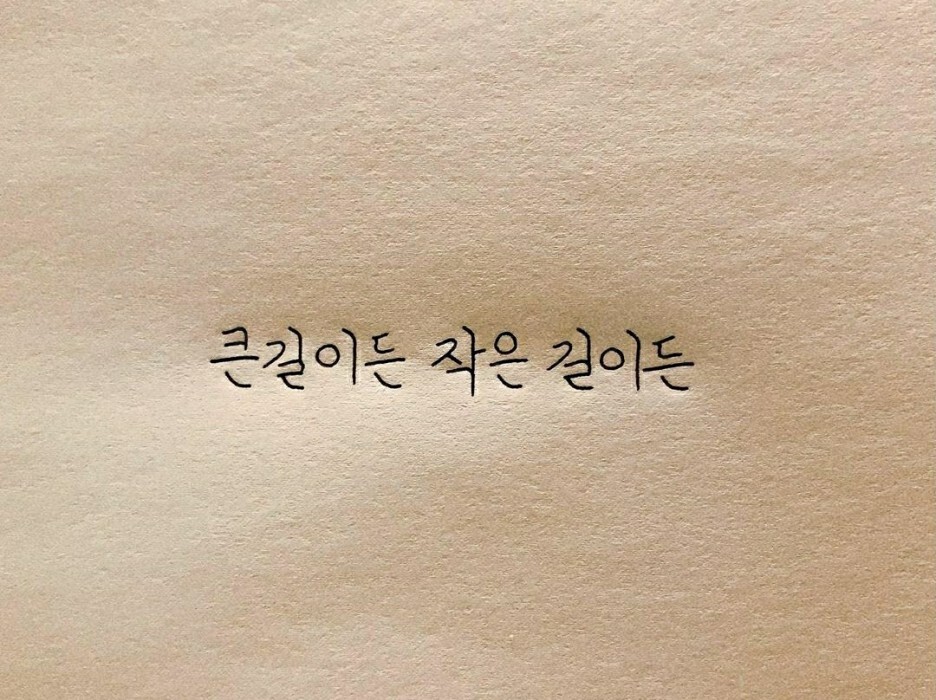 큰길이든 작은 길이든